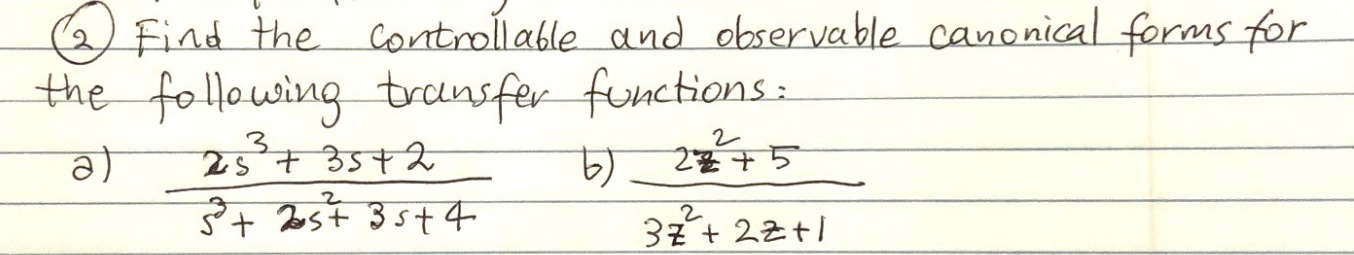 ② Find the controllable and observable canonical forms for
the following transfer functions:
a) 2s³ + 3s + 2 b) 2z² + 5
s³ + 2s² + 3s + 4 3z² + 2z + 1